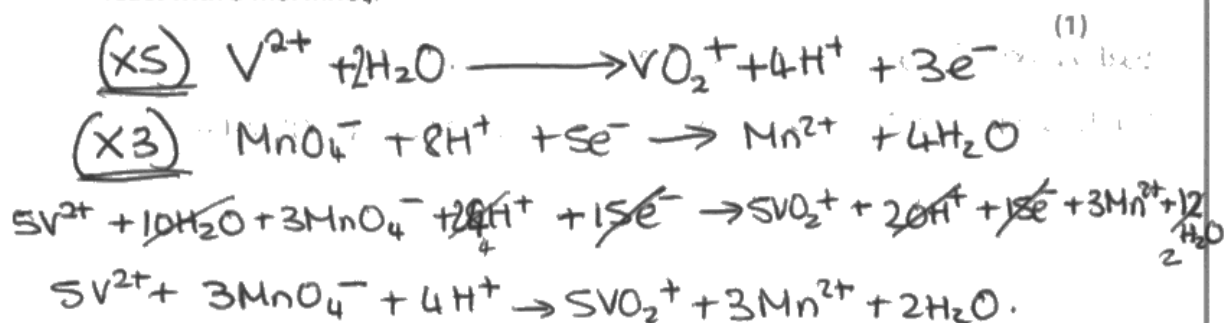 (1)
(x5) V²⁺ + 2H₂O ⟶ VO₂⁺ + 4H⁺ + 3e⁻
(x3) MnO₄⁻ + 8H⁺ + 5e⁻ → Mn²⁺ + 4H₂O
5V²⁺ + 10H₂O + 3MnO₄⁻ + 24H⁺ 4 + 15e⁻ → 5VO₂⁺ + 20H⁺ + 15e⁻ + 3Mn²⁺ + 12 H₂O 2
5V²⁺ + 3MnO₄⁻ + 4H⁺ → 5VO₂⁺ + 3Mn²⁺ + 2H₂O.